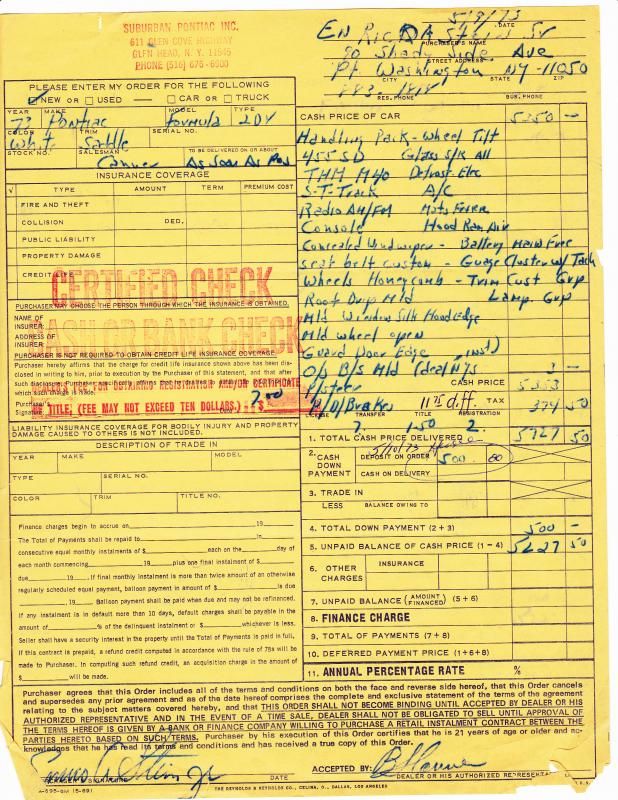 SUBURBAN PONTIAC INC.
611 GLEN COVE HIGHWAY
GLEN HEAD, N. Y. 11545
PHONE (516) 676-6000
DATE
PURCHASER'S NAME
90 Shady Side Ave
STREET ADDRESS
Pt. Washington NY-11050
CITY STATE
883-1818
RES. PHONE BUS. PHONE
PLEASE ENTER MY ORDER FOR THE FOLLOWING
NEW OR USED — CAR OR TRUCK
YEAR MAKE MODEL TYPE
73 Pontiac Formula 2DR
COLOR TRIM SERIAL NO.
White Saddle
STOCK NO. SALESMAN TO BE DELIVERED ON OR ABOUT
As Soon As Pos
INSURANCE COVERAGE
√ TYPE AMOUNT TERM PREMIUM COST
FIRE AND THEFT
COLLISION DED.
PUBLIC LIABILITY
PROPERTY DAMAGE
CREDIT LIFE
CERTIFIED CHECK
PURCHASER MAY CHOOSE THE PERSON THROUGH WHICH THE INSURANCE IS OBTAINED.
NAME OF
INSURER:
BANK CHECK
ADDRESS OF
INSURER:
PURCHASER IS NOT REQUIRED TO OBTAIN CREDIT LIFE INSURANCE COVERAGE
Purchaser hereby affirms that the charge for credit life insurance shown above has been dis-
closed in writing to him, prior to execution by the Purchaser of this statement, and that after
such disclosure, Purchaser
which such charge is made.
FOR OBTAINING REGISTRATION AND/OR CERTIFICATE
Purchaser's
Signature
OF TITLE, (FEE MAY NOT EXCEED TEN DOLLARS) $
7.00
LIABILITY INSURANCE COVERAGE FOR BODILY INJURY AND PROPERTY
DAMAGE CAUSED TO OTHERS IS NOT INCLUDED.
DESCRIPTION OF TRADE IN
YEAR MAKE MODEL
TYPE SERIAL NO.
COLOR TRIM TITLE NO.
Finance charges begin to accrue on 19
The Total of Payments shall be repaid to in
consecutive equal monthly instalments of $ each on the day of
each month commencing 19 plus one final instalment of $
due 19 . If final monthly instalment is more than twice amount of an otherwise
regularly scheduled equal payment, balloon payment in amount of $ is due
, 19 . Balloon payment shall be paid when due and may not be refinanced.
If any instalment is in default more than 10 days, default charges shall be payable in the
amount of % of the delinquent instalment or $ whichever is less.
Seller shall have a security interest in the property until the Total of Payments is paid in full,
If this contract is prepaid, a refund credit computed in accordance with the rule of 78s will be
made to Purchaser. In computing such refund credit, an acquisition charge in the amount of
$ will be made.
CASH PRICE OF CAR 5350 —
Handling Pack - Wheel Tilt
455 SD Glass S/R All
THM M40 Defrost-Elec
S-T-Track A/C
Radio AM/FM
Console Hood Ram Air
Concealed Windwiper - Battery Main Free
Seat belt custom - Guage Cluster w/ Tach
Wheels Honeycomb - Trim Cust Grp
Roof Drip Mld Lamp. Grp
Mld Window Silk HoodEdge
Mld wheel open
Guard Door Edge
O/S B/S Mld (dealer inst) N/S 3 —
CASH PRICE 5353
P/Steer
P/D/Brakes TAX 374 50
LICENSE TRANSFER TITLE REGISTRATION
1.50 2.
1. TOTAL CASH PRICE DELIVERED 5727 50
5/10/73
2. CASH DOWN PAYMENT
DEPOSIT ON ORDER 500. 00
CASH ON DELIVERY
3. TRADE IN
LESS BALANCE OWING TO
4. TOTAL DOWN PAYMENT (2 + 3) 500 —
5. UNPAID BALANCE OF CASH PRICE (1 – 4) 5227 50
6. OTHER CHARGES INSURANCE
7. UNPAID BALANCE (AMOUNT FINANCED) (5 + 6)
8. FINANCE CHARGE
9. TOTAL OF PAYMENTS (7 + 8)
10. DEFERRED PAYMENT PRICE (1+6+8)
11. ANNUAL PERCENTAGE RATE %
Purchaser agrees that this Order includes all of the terms and conditions on both the face and reverse side hereof, that this Order cancels
and supersedes any prior agreement and as of the date hereof comprises the complete and exclusive statement of the terms of the agreement
relating to the subject matters covered hereby, and that THIS ORDER SHALL NOT BECOME BINDING UNTIL ACCEPTED BY DEALER OR HIS
AUTHORIZED REPRESENTATIVE AND IN THE EVENT OF A TIME SALE, DEALER SHALL NOT BE OBLIGATED TO SELL UNTIL APPROVAL OF
THE TERMS HEREOF IS GIVEN BY A BANK OR FINANCE COMPANY WILLING TO PURCHASE A RETAIL INSTALMENT CONTRACT BETWEEN THE
PARTIES HERETO BASED ON SUCH TERMS. Purchaser by his execution of this Order certifies that he is 21 years of age or older and ac-
knowledges that he has read its terms and conditions and has received a true copy of this Order.
ACCEPTED BY:
SIGNATURE DATE DEALER OR HIS AUTHORIZED
THE REYNOLDS & REYNOLDS CO., CELINA, O., DALLAS, LOS ANGELES